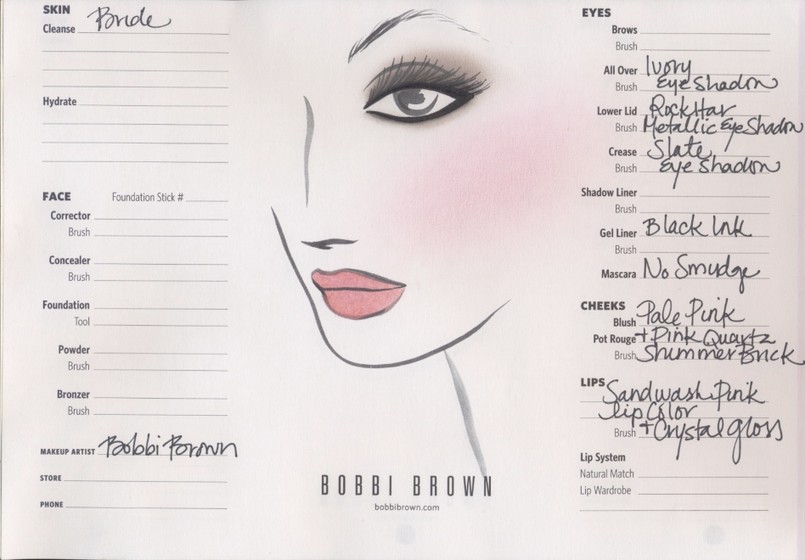 SKIN
Bride
Cleanse
Hydrate
FACE Foundation Stick #
Corrector
Brush
Concealer
Brush
Foundation
Tool
Powder
Brush
Bronzer
Brush
MAKEUP ARTIST Bobbi Brown
STORE
PHONE
BOBBI BROWN
bobbibrown.com
EYES
Brows
Brush
All Over Ivory
Brush Eye Shadow
Lower Lid Rockstar
Brush Metallic Eye Shadow
Crease Slate
Brush Eye Shadow
Shadow Liner
Brush
Gel Liner Black Ink
Brush
Mascara No Smudge
CHEEKS
Blush Pale Pink
Pot Rouge + Pink Quartz
Brush Shimmer Brick
LIPS Sandwash Pink
lip Color
Brush + Crystal gloss
Lip System
Natural Match
Lip Wardrobe